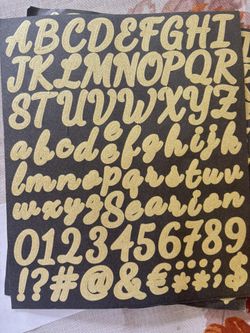 ABCDEFGHI
JKLMNOPQR
STUVWXYZ
abcdeefghijk
lmnopqrstuv
wxyzSearien
0123456789
!?#@&€